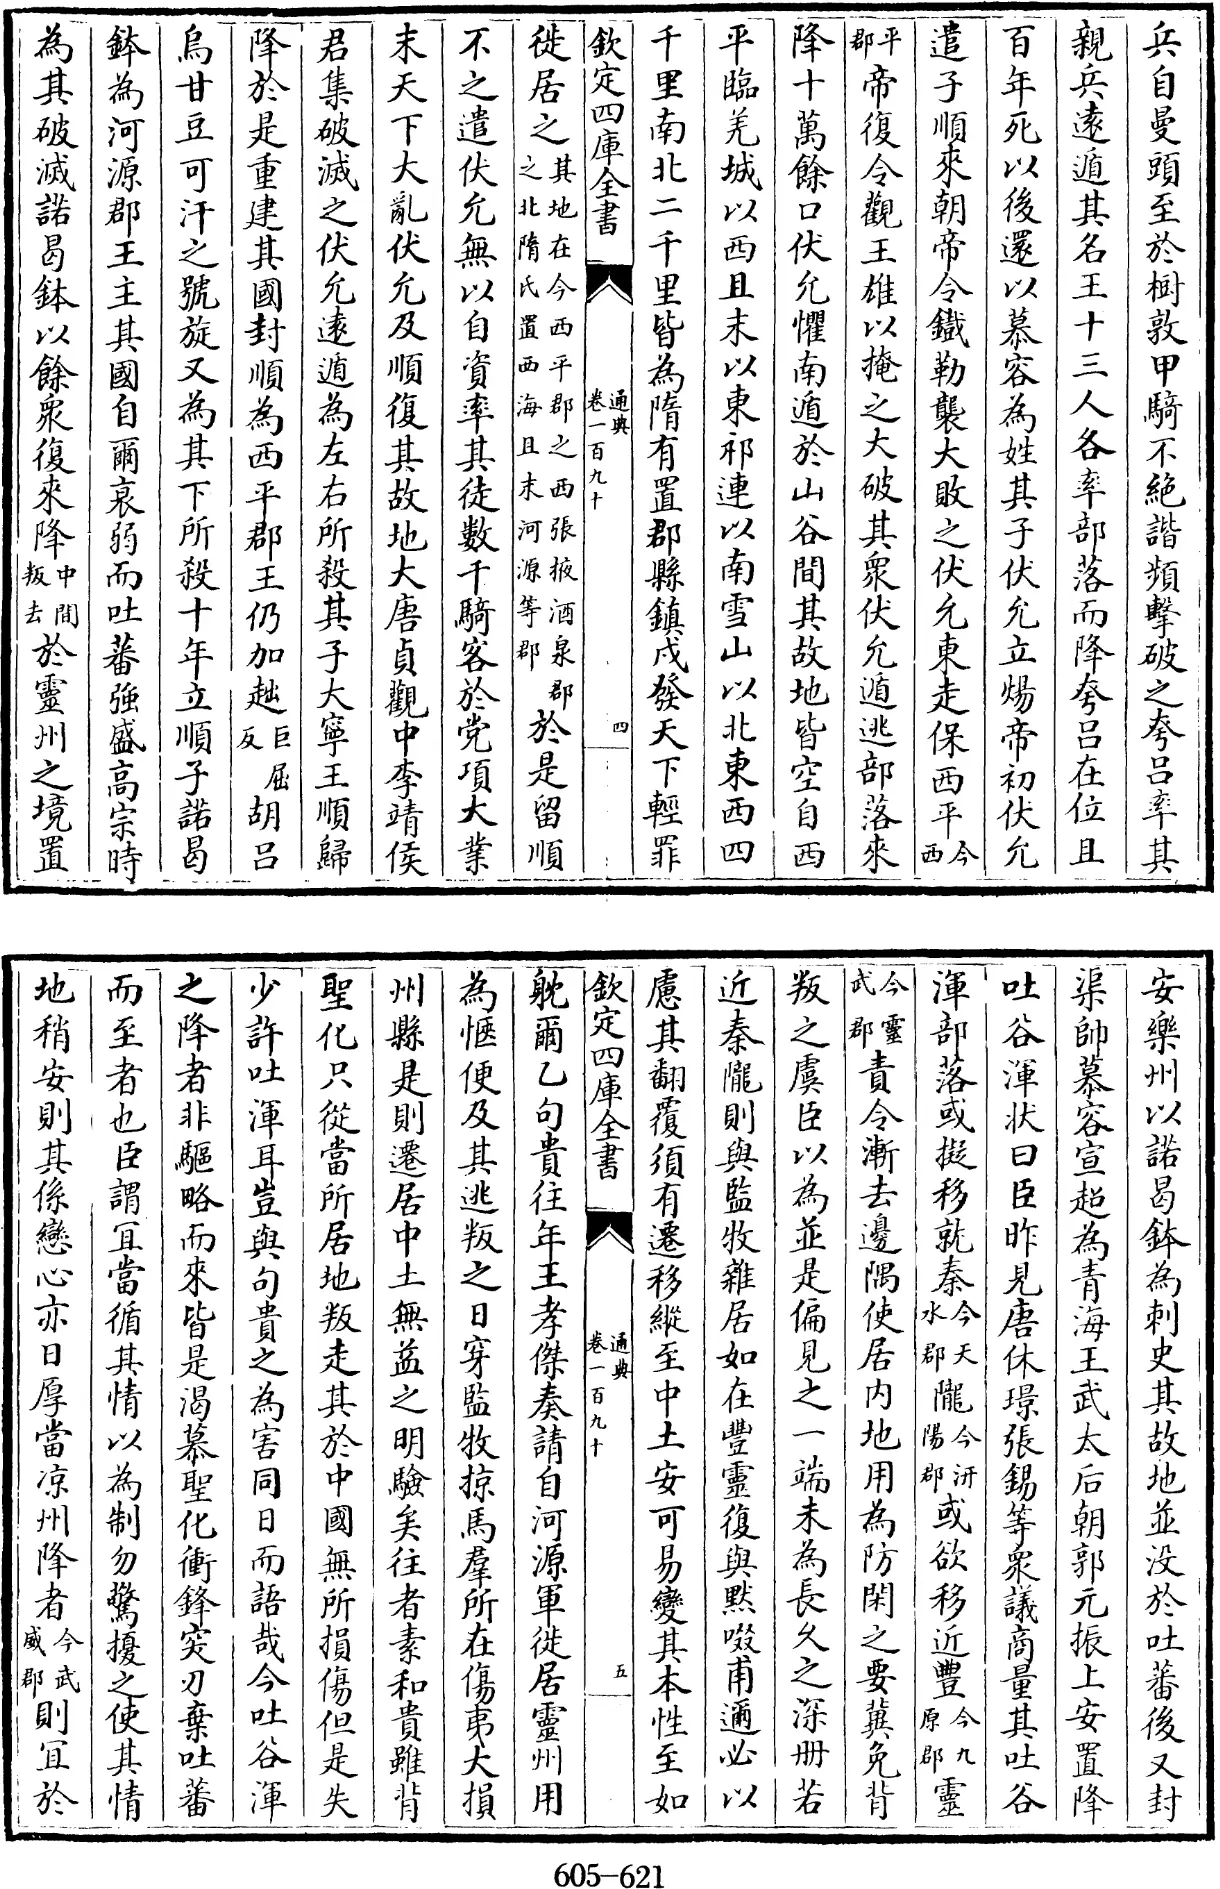 兵自曼頭至於樹敦甲騎不絶諧頻擊破之夸呂率其
親兵遠遁其名王十三人各率部落而降夸呂在位且
百年死以後還以慕容為姓其子伏允立煬帝初伏允
遣子順來朝帝令鐵勒襲大敗之伏允東走保西平今西
平郡帝復令觀王雄以掩之大破其衆伏允遁逃部落來
降十萬餘口伏允懼南遁於山谷間其故地皆空自西
平臨羌城以西且末以東祁連以南雪山以北東西四
千里南北二千里皆為隋有置郡縣鎮戍發天下輕罪
欽定四庫全書 通典 卷一百九十 四
徙居之其地在今西平郡之西張掖酒泉郡之北隋氏置西海且末河源等郡於是留順
不之遣伏允無以自資率其徒數千騎客於党項大業
末天下大亂伏允及順復其故地大唐貞觀中李靖侯
君集破滅之伏允遠遁為左右所殺其子大寧王順歸
降於是重建其國封順為西平郡王仍加趉巨屈反胡呂
烏甘豆可汗之號旋又為其下所殺十年立順子諾曷
鉢為河源郡王主其國自爾衰弱而吐蕃強盛高宗時
為其破滅諾曷鉢以餘衆復來降中間叛去於靈州之境置
安樂州以諾曷鉢為刺史其故地並没於吐蕃後又封
渠帥慕容宣超為青海王武太后朝郭元振上安置降
吐谷渾状曰臣昨見唐休璟張錫等衆議商量其吐谷
渾部落或擬移就秦今天水郡隴今汧陽郡或欲移近豐今九原郡靈
今靈武郡責令漸去邊隅使居内地用為防閑之要冀免背
叛之虞臣以為並是偏見之一端未為長久之深册若
近秦隴則與監牧雜居如在豐靈復與黙啜甫邇必以
慮其翻覆須有遷移縱至中土安可易變其本性至如
欽定四庫全書 通典 卷一百九十 五
躭爾乙句貴往年王孝傑奏請自河源軍徙居靈州用
為愜便及其逃叛之日穿監牧掠馬羣所在傷夷大損
州縣是則遷居中土無益之明驗矣往者素和貴雖背
聖化只從當所居地叛走其於中國無所損傷但是失
少許吐渾耳豈與句貴之為害同日而語哉今吐谷渾
之降者非驅略而來皆是渴慕聖化衝鋒突刃棄吐蕃
而至者也臣謂宜當循其情以為制勿驚擾之使其情
地稍安則其係戀心亦日厚當凉州降者今武威郡則宜於
605-621